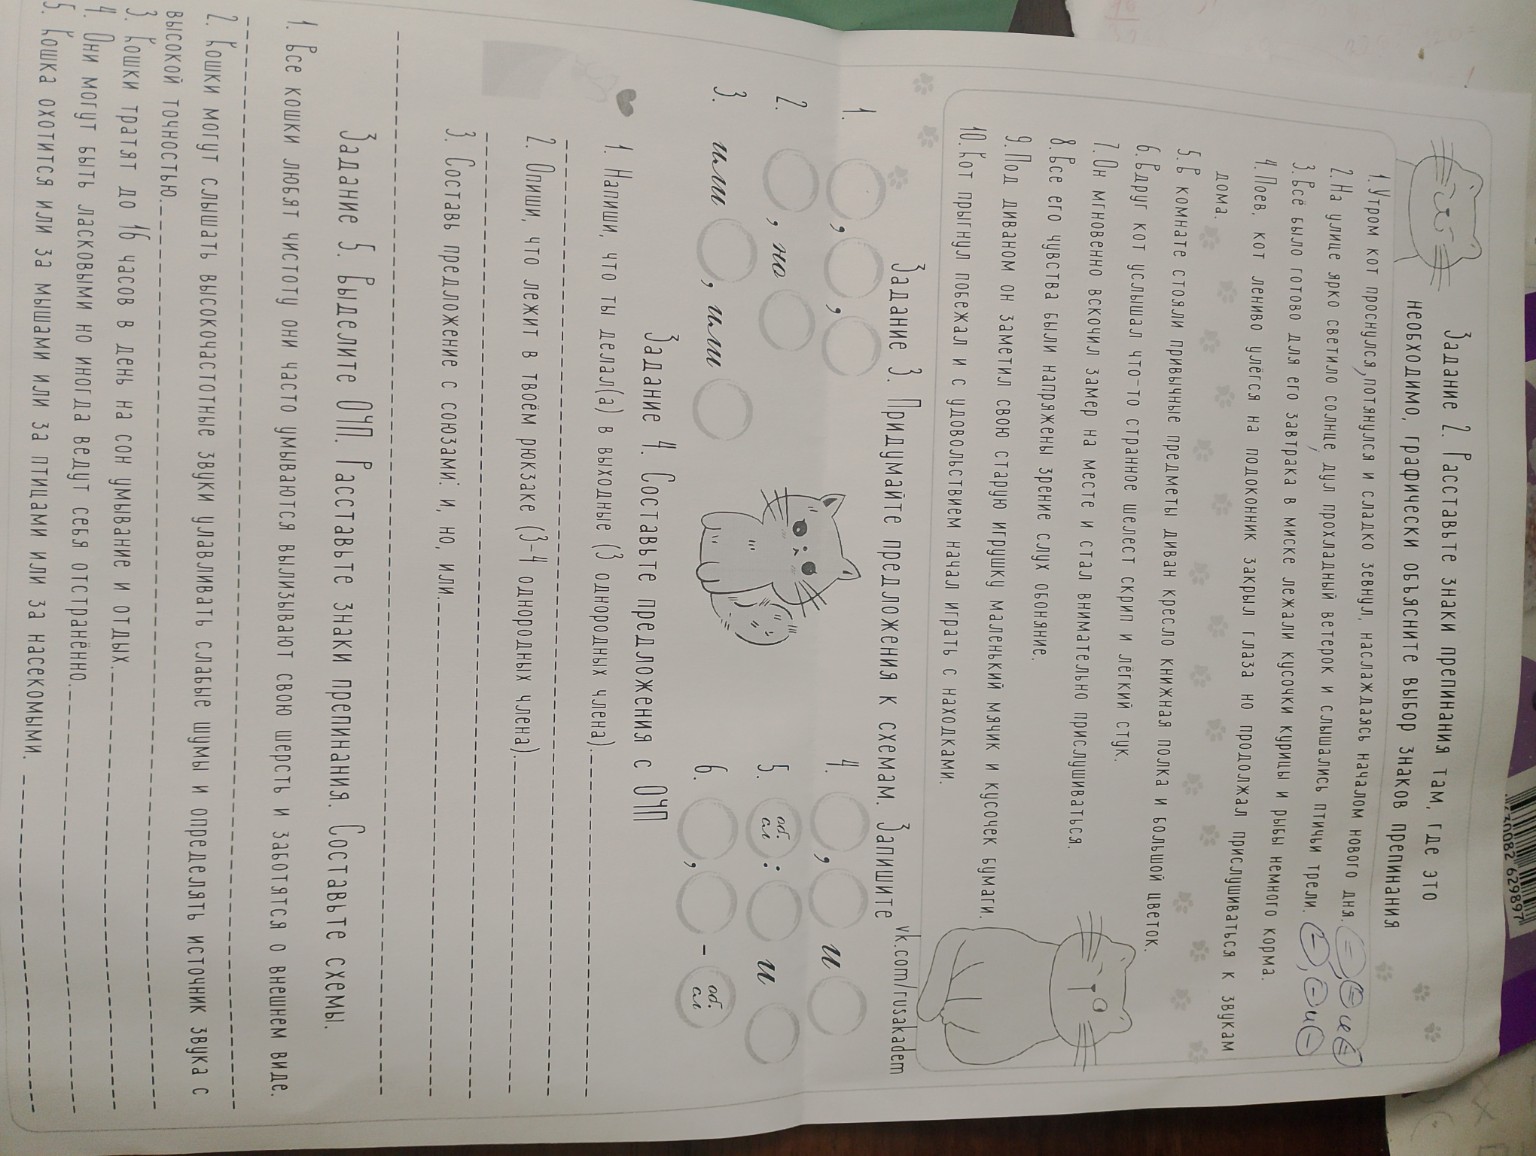 Задание 2. Расставьте знаки препинания там, где это
необходимо, графически объясните выбор знаков препинания
1. Утром кот проснулся, потянулся и сладко зевнул, наслаждаясь началом нового дня.
2. На улице ярко светило солнце, дул прохладный ветерок и слышались птичьи трели.
3. Всё было готово для его завтрака в миске лежали кусочки курицы и рыбы немного корма.
4. Поев, кот лениво улёгся на подоконник закрыл глаза но продолжал прислушиваться к звукам
дома.
5. В комнате стояли привычные предметы диван кресло книжная полка и большой цветок.
6. Вдруг кот услышал что-то странное шелест скрип и лёгкий стук.
7. Он мгновенно вскочил замер на месте и стал внимательно прислушиваться.
8. Все его чувства были напряжены зрение слух обоняние.
9. Под диваном он заметил свою старую игрушку маленький мячик и кусочек бумаги.
10. Кот прыгнул побежал и с удовольствием начал играть с находками.
vk.com/rusakadem
Задание 3. Придумайте предложения к схемам. Запишите
1. , ,
2. , но
3. или , или
4. , и
5. об. сл : и
6. , - об. сл
Задание 4. Составьте предложения с ОЧП
1. Напиши, что ты делал(а) в выходные (3 однородных члена).
2. Опиши, что лежит в твоём рюкзаке (3-4 однородных члена).
3. Составь предложение с союзами: и, но, или.
Задание 5. Выделите ОЧП. Расставьте знаки препинания. Составьте схемы.
1. Все кошки любят чистоту они часто умываются вылизывают свою шерсть и заботятся о внешнем виде.
2. Кошки могут слышать высокочастотные звуки улавливать слабые шумы и определять источник звука с
высокой точностью.
3. Кошки тратят до 16 часов в день на сон умывание и отдых.
4. Они могут быть ласковыми но иногда ведут себя отстранённо.
5. Кошка охотится или за мышами или за птицами или за насекомыми.